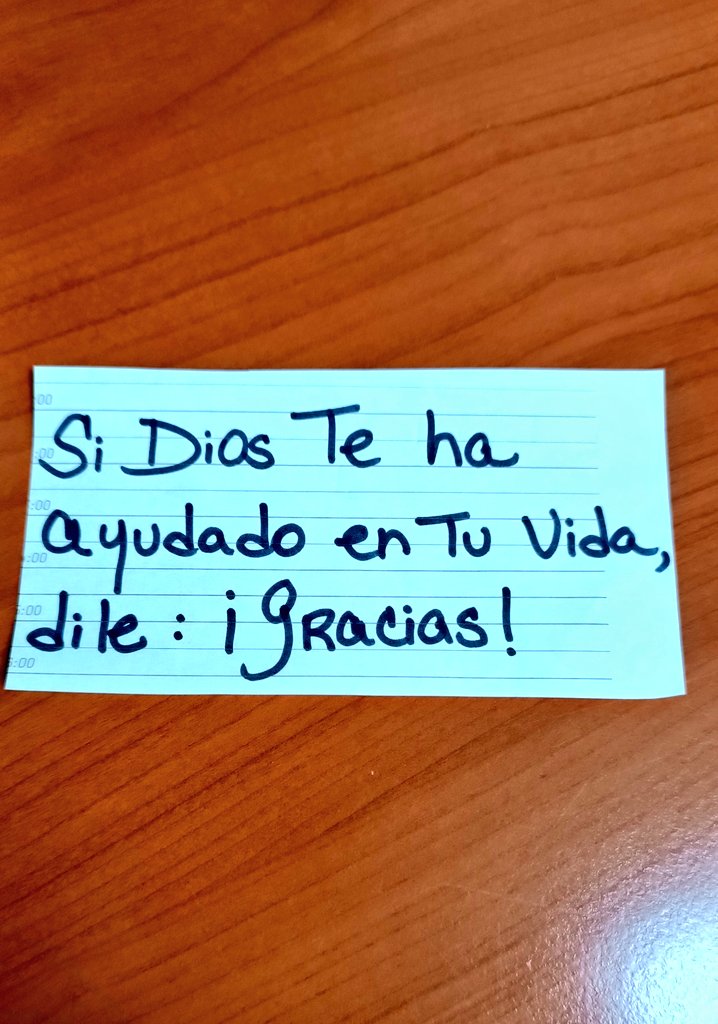 Si Dios Te ha
ayudado en Tu Vida,
dile: ¡gracias!
:00
:00
:00
:00
5:00
6:00